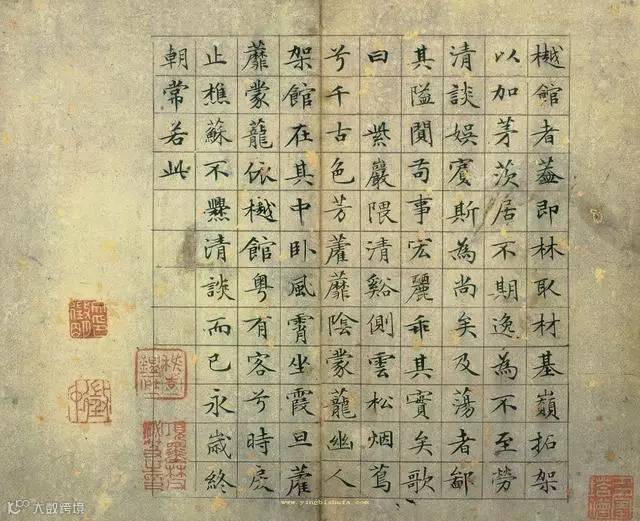 樾館者蓋即林取材基嶺拓架
以加茅茨居不期逸為不至勞
清談娛賓斯為尚矣及蕩者鄙
其隘閴苟事宏麗乖其實矣歌
曰 紫巖隈清谿側雲松烟蔦
兮千古色芳藿蘼陰蒙蘢幽人
架館在其中卧風霄坐霞旦藿
蘼蒙蘢依樾館粵有客兮時戾
止樵蘇不爨清談而已永歲終
朝常若此
大數跨境
www.yingbishufa.com